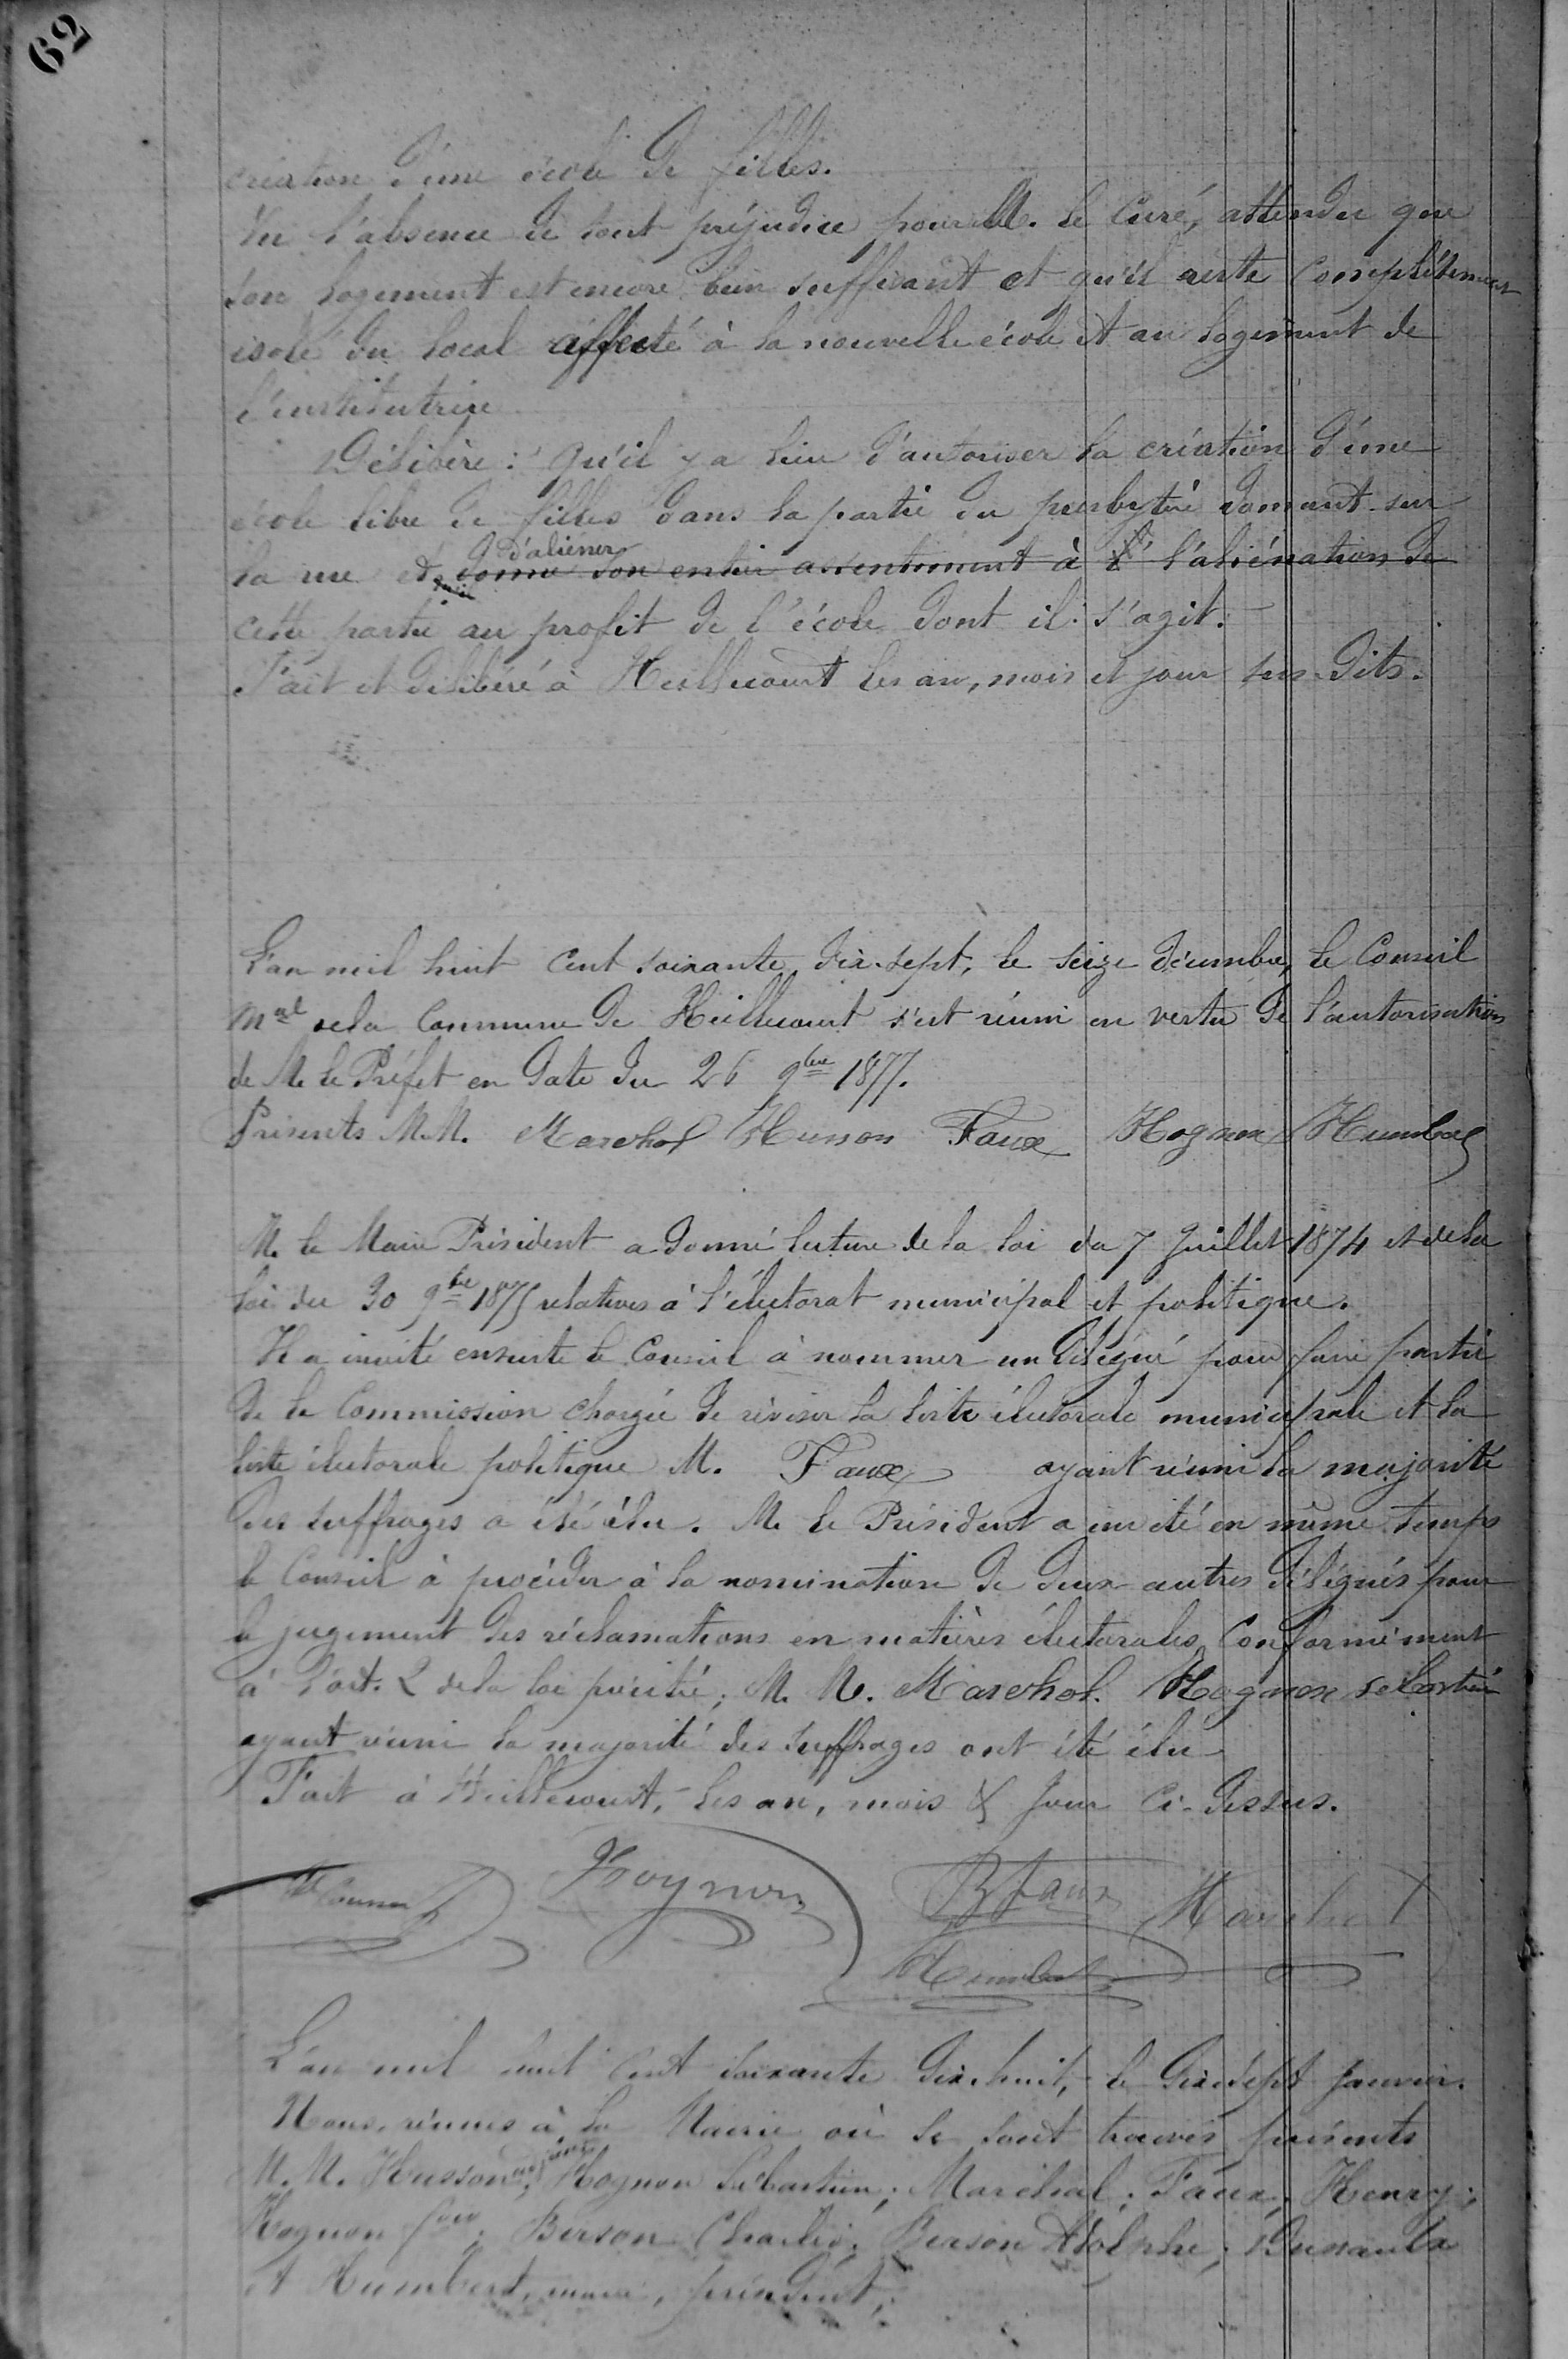 62
création d'une école de filles.
Vu l'absence de tout préjudice pour M. le Curé, attendu que
son logement est encore bien suffisant et qu'il reste complètement
isolé du local affecté à la nouvelle école et au logement de
l'institutrice
Délibère: qu'il y a lieu d'autoriser la création d'une
école libre de filles dans la partie du presbytère donnant sur
d'aliéner
la rue et donne son entier assentiment à l'aliénation de
cette partie au profit de l'école dont il s'agit.
Fait et délibéré à Heillecourt les an, mois et jour sus-dits.
L'an mil huit cent soixante dix-sept, le seize décembre, le Conseil
Mal de la Commune de Heillecourt s'est réuni en vertu de l'autorisation
de M. le Préfet en date du 26 9bre 1877.
Présents M.M. Marchal Husson Faux Hognon Humbert
M. le Maire Président a donné lecture de la loi du 7 Juillet 1874 et de la
loi du 30 9bre 1875 relatives à l'électorat municipal et politique.
Il a invité ensuite le Conseil à nommer un délégué pour faire partie
de la Commission chargée de réviser la liste électorale municipale et la
liste électorale politique M. Faux ayant réuni la majorité
des suffrages a été élu. M. le Président a invité en même temps
le Conseil à procéder à la nomination de deux autres délégués pour
le jugement des réclamations en matières électorales, Conformément
à l'art. 2 de la loi précitée; M. M. Marchal. Hognon sebastien
ayant réuni la majorité des suffrages ont été élu
Fait à Heillecourt, les an, mois & jour ci-dessus.
Husson Hognon Faux Marchal
Humbert
L'an mil huit cent soixante dix-huit, le dix-sept janvier.
Nous, réunis à la Mairie où se sont trouvés présents
M.M. Husson, adjoint; Hognon Sébastien; Maréchal; Faux; Henry;
Hognon; Berson Charles; Berson Adolphe;
et Humbert, maire, président,